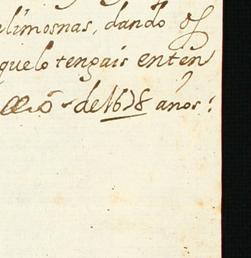 elimosnas, dando
quelo tengais enten
de 1678 años: